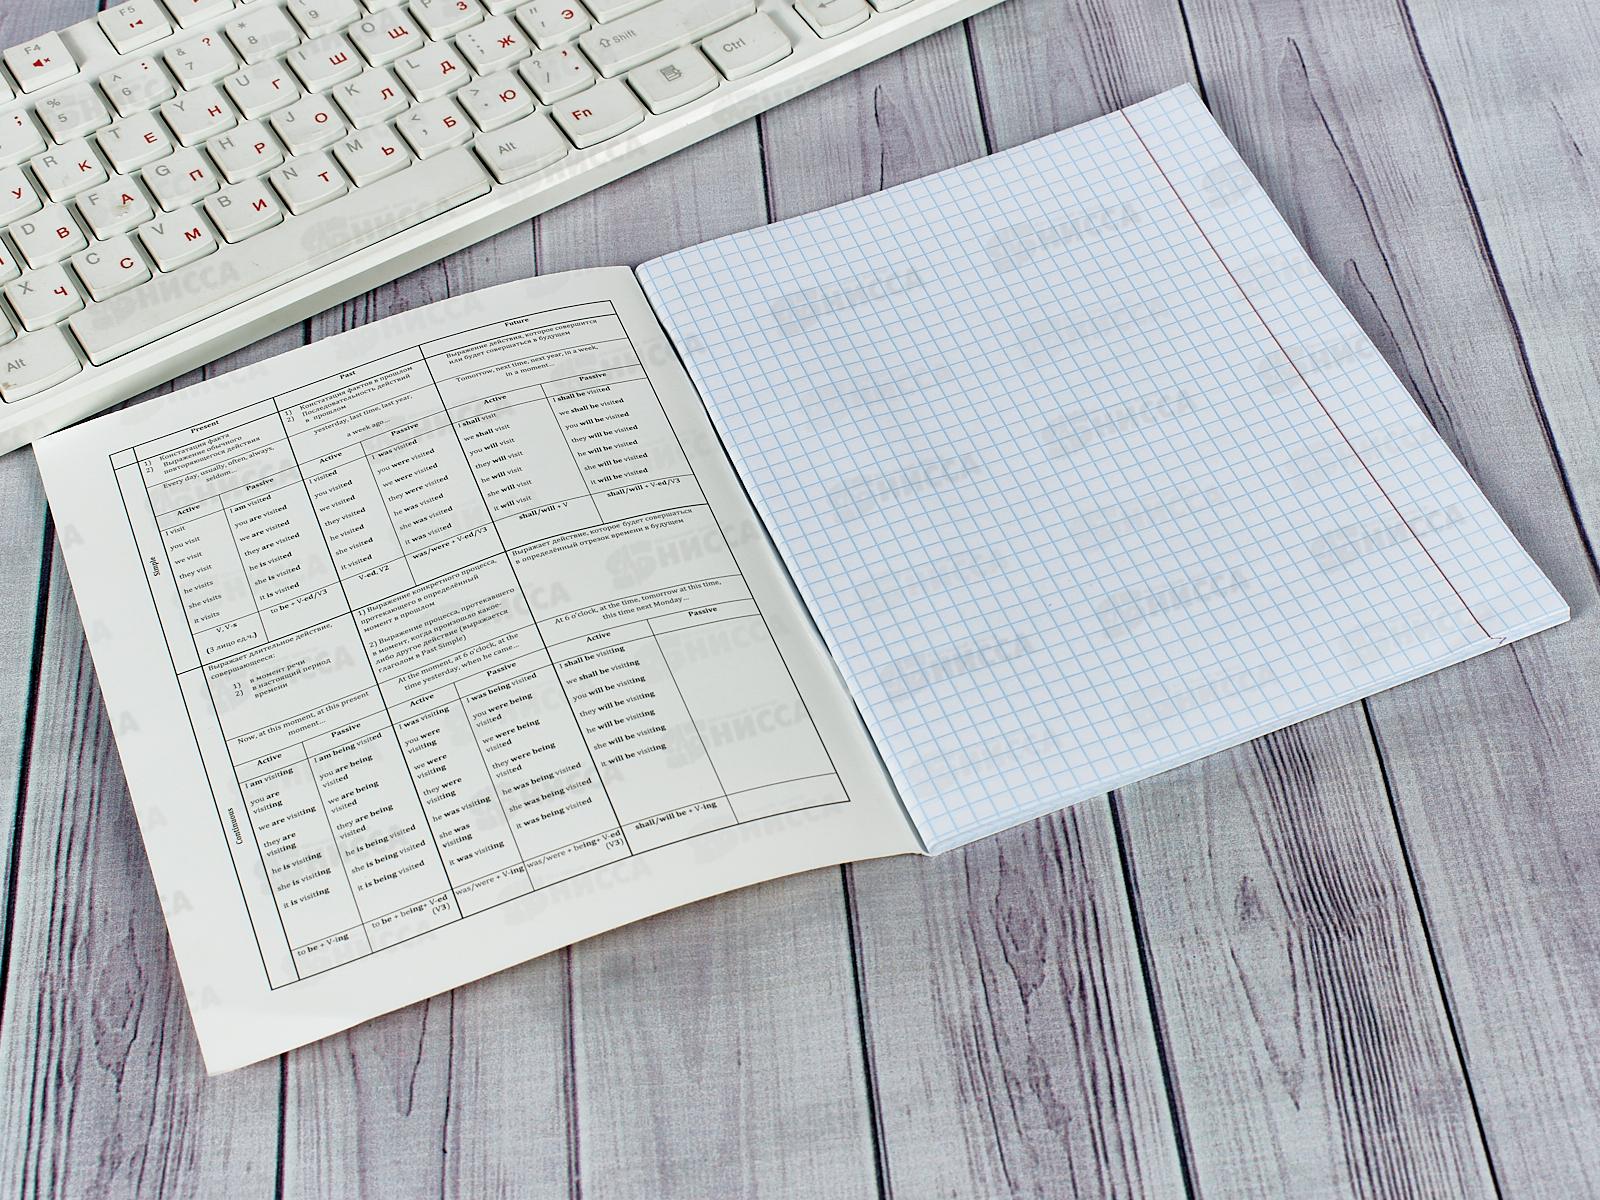 Present
Past
Future
Simple
1) Констатация факта
2) Выражение обычного
повторяющегося действия
1) Констатация фактов в прошлом
2) Последовательность действий
в прошлом
Выражение действия, которое совершится
или будет совершаться в будущем
Every day, usually, often, always,
seldom...
yesterday, last time, last year,
a week ago...
Tomorrow, next time, next year, in a week,
in a moment...
Active
Passive
Active
Passive
Active
Passive
I visit
you visit
we visit
they visit
he visits
she visits
it visits
I am visited
you are visited
we are visited
they are visited
he is visited
she is visited
it is visited
I visited
you visited
we visited
they visited
he visited
she visited
it visited
I was visited
you were visited
we were visited
they were visited
he was visited
she was visited
it was visited
I shall visit
we shall visit
you will visit
they will visit
he will visit
she will visit
it will visit
I shall be visited
we shall be visited
you will be visited
they will be visited
he will be visited
she will be visited
it will be visited
V, V-s
(3 лицо ед.ч.)
to be + V-ed/V3
V-ed, V2
was/were + V-ed/V3
shall/will + V
shall/will + V-ed/V3
Continuous
Выражает длительное действие,
совершающееся:
1) в момент речи
2) в настоящий период
времени
1) Выражение конкретного процесса,
протекающего в определённый
момент в прошлом
2) Выражение процесса, протекавшего
в момент, когда произошло какое-
либо другое действие (выражается
глаголом в Past Simple)
Выражает действие, которое будет совершаться
в определённый отрезок времени в будущем
Now, at this moment, at this present
moment...
At the moment, at 6 o'clock, at the
time yesterday, when he came...
At 6 o'clock, at the time, tomorrow at this time,
this time next Monday...
Active
Passive
Active
Passive
Active
Passive
I am visiting
you are
visiting
we are visiting
they are
visiting
he is visiting
she is visiting
it is visiting
I am being visited
you are being
visited
we are being
visited
they are being
visited
he is being visited
she is being visited
it is being visited
I was visiting
you were
visiting
we were
visiting
they were
visiting
he was visiting
she was
visiting
it was visiting
I was being visited
you were being
visited
we were being
visited
they were being
visited
he was being visited
she was being visited
it was being visited
I shall be visiting
we shall be visiting
you will be visiting
they will be visiting
he will be visiting
she will be visiting
it will be visiting
to be + V-ing
to be + being+ V-ed
(V3)
was/were + V-ing
was/were + being+ V-ed
(V3)
shall/will be + V-ing
F4
F5
Shift
Ctrl
Alt
Fn
Alt
НИССА